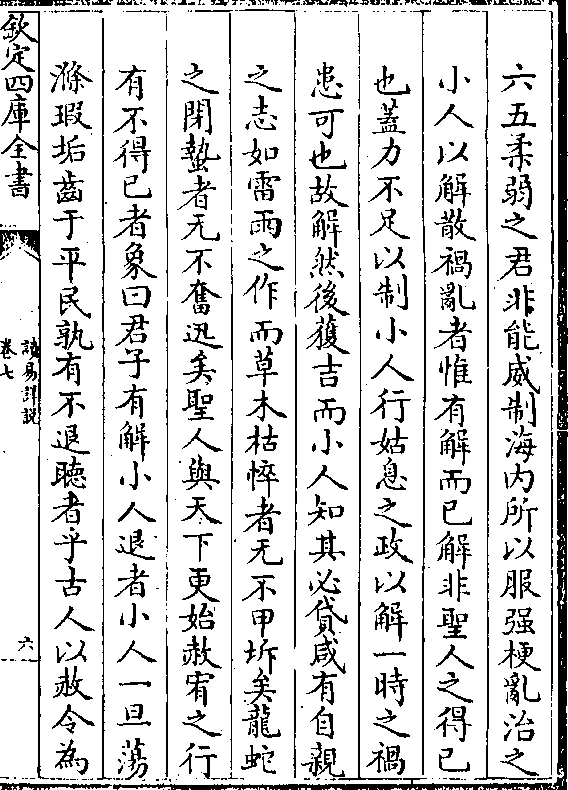 六五柔弱之君非能威制海内所以服强梗亂治之
小人以解散禍亂者惟有解而已解非聖人之得已
也蓋力不足以制小人行姑息之政以解一時之禍
患可也故解然後獲吉而小人知其必貸咸有自親
之志如雷雨之作而草木枯悴者无不甲坼矣龍蛇
之閉蟄者无不奮迅矣聖人與天下更始赦宥之行
有不得已者象曰君子有解小人退者小人一旦蕩
滌瑕垢齒于平民孰有不退聽者乎古人以赦令為
欽定四庫全書
讀易詳說
卷七
六